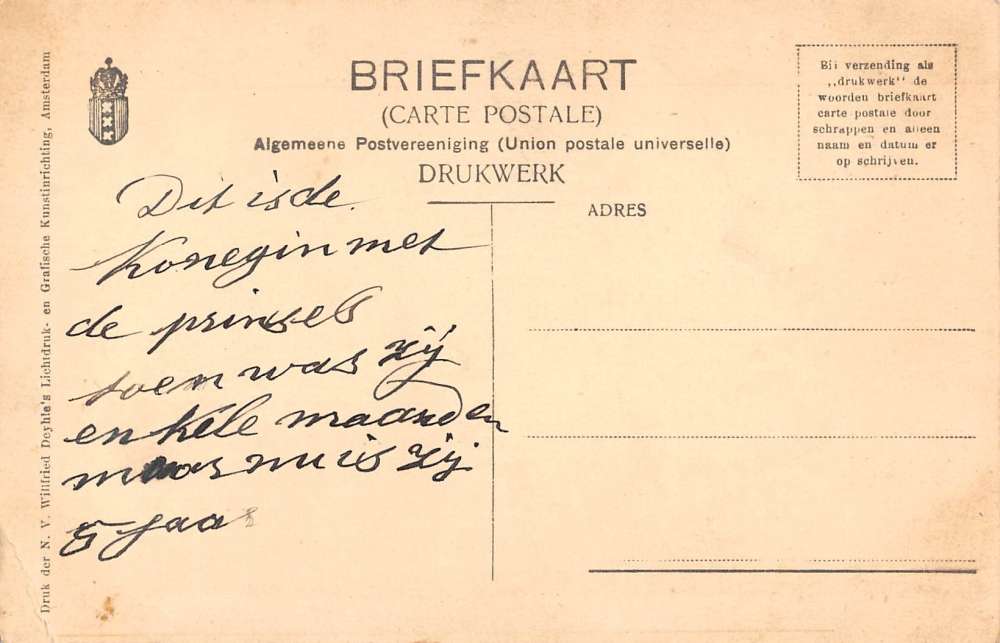 BRIEFKAART
(CARTE POSTALE)
Algemeene Postvereeniging (Union postale universelle)
DRUKWERK
Bij verzending als
„drukwerk" de
woorden briefkaart
carte postale door
schrappen en alleen
naam en datum er
op schrijven.
ADRES
Dit is de
Konegin met
de prinses
toen was zij
enkele maanden
maar nu is zij
5 jaar
Druk der N. V. Willfried Deyhle's Lichtdruk- en Grafische Kunstinrichting, Amsterdam